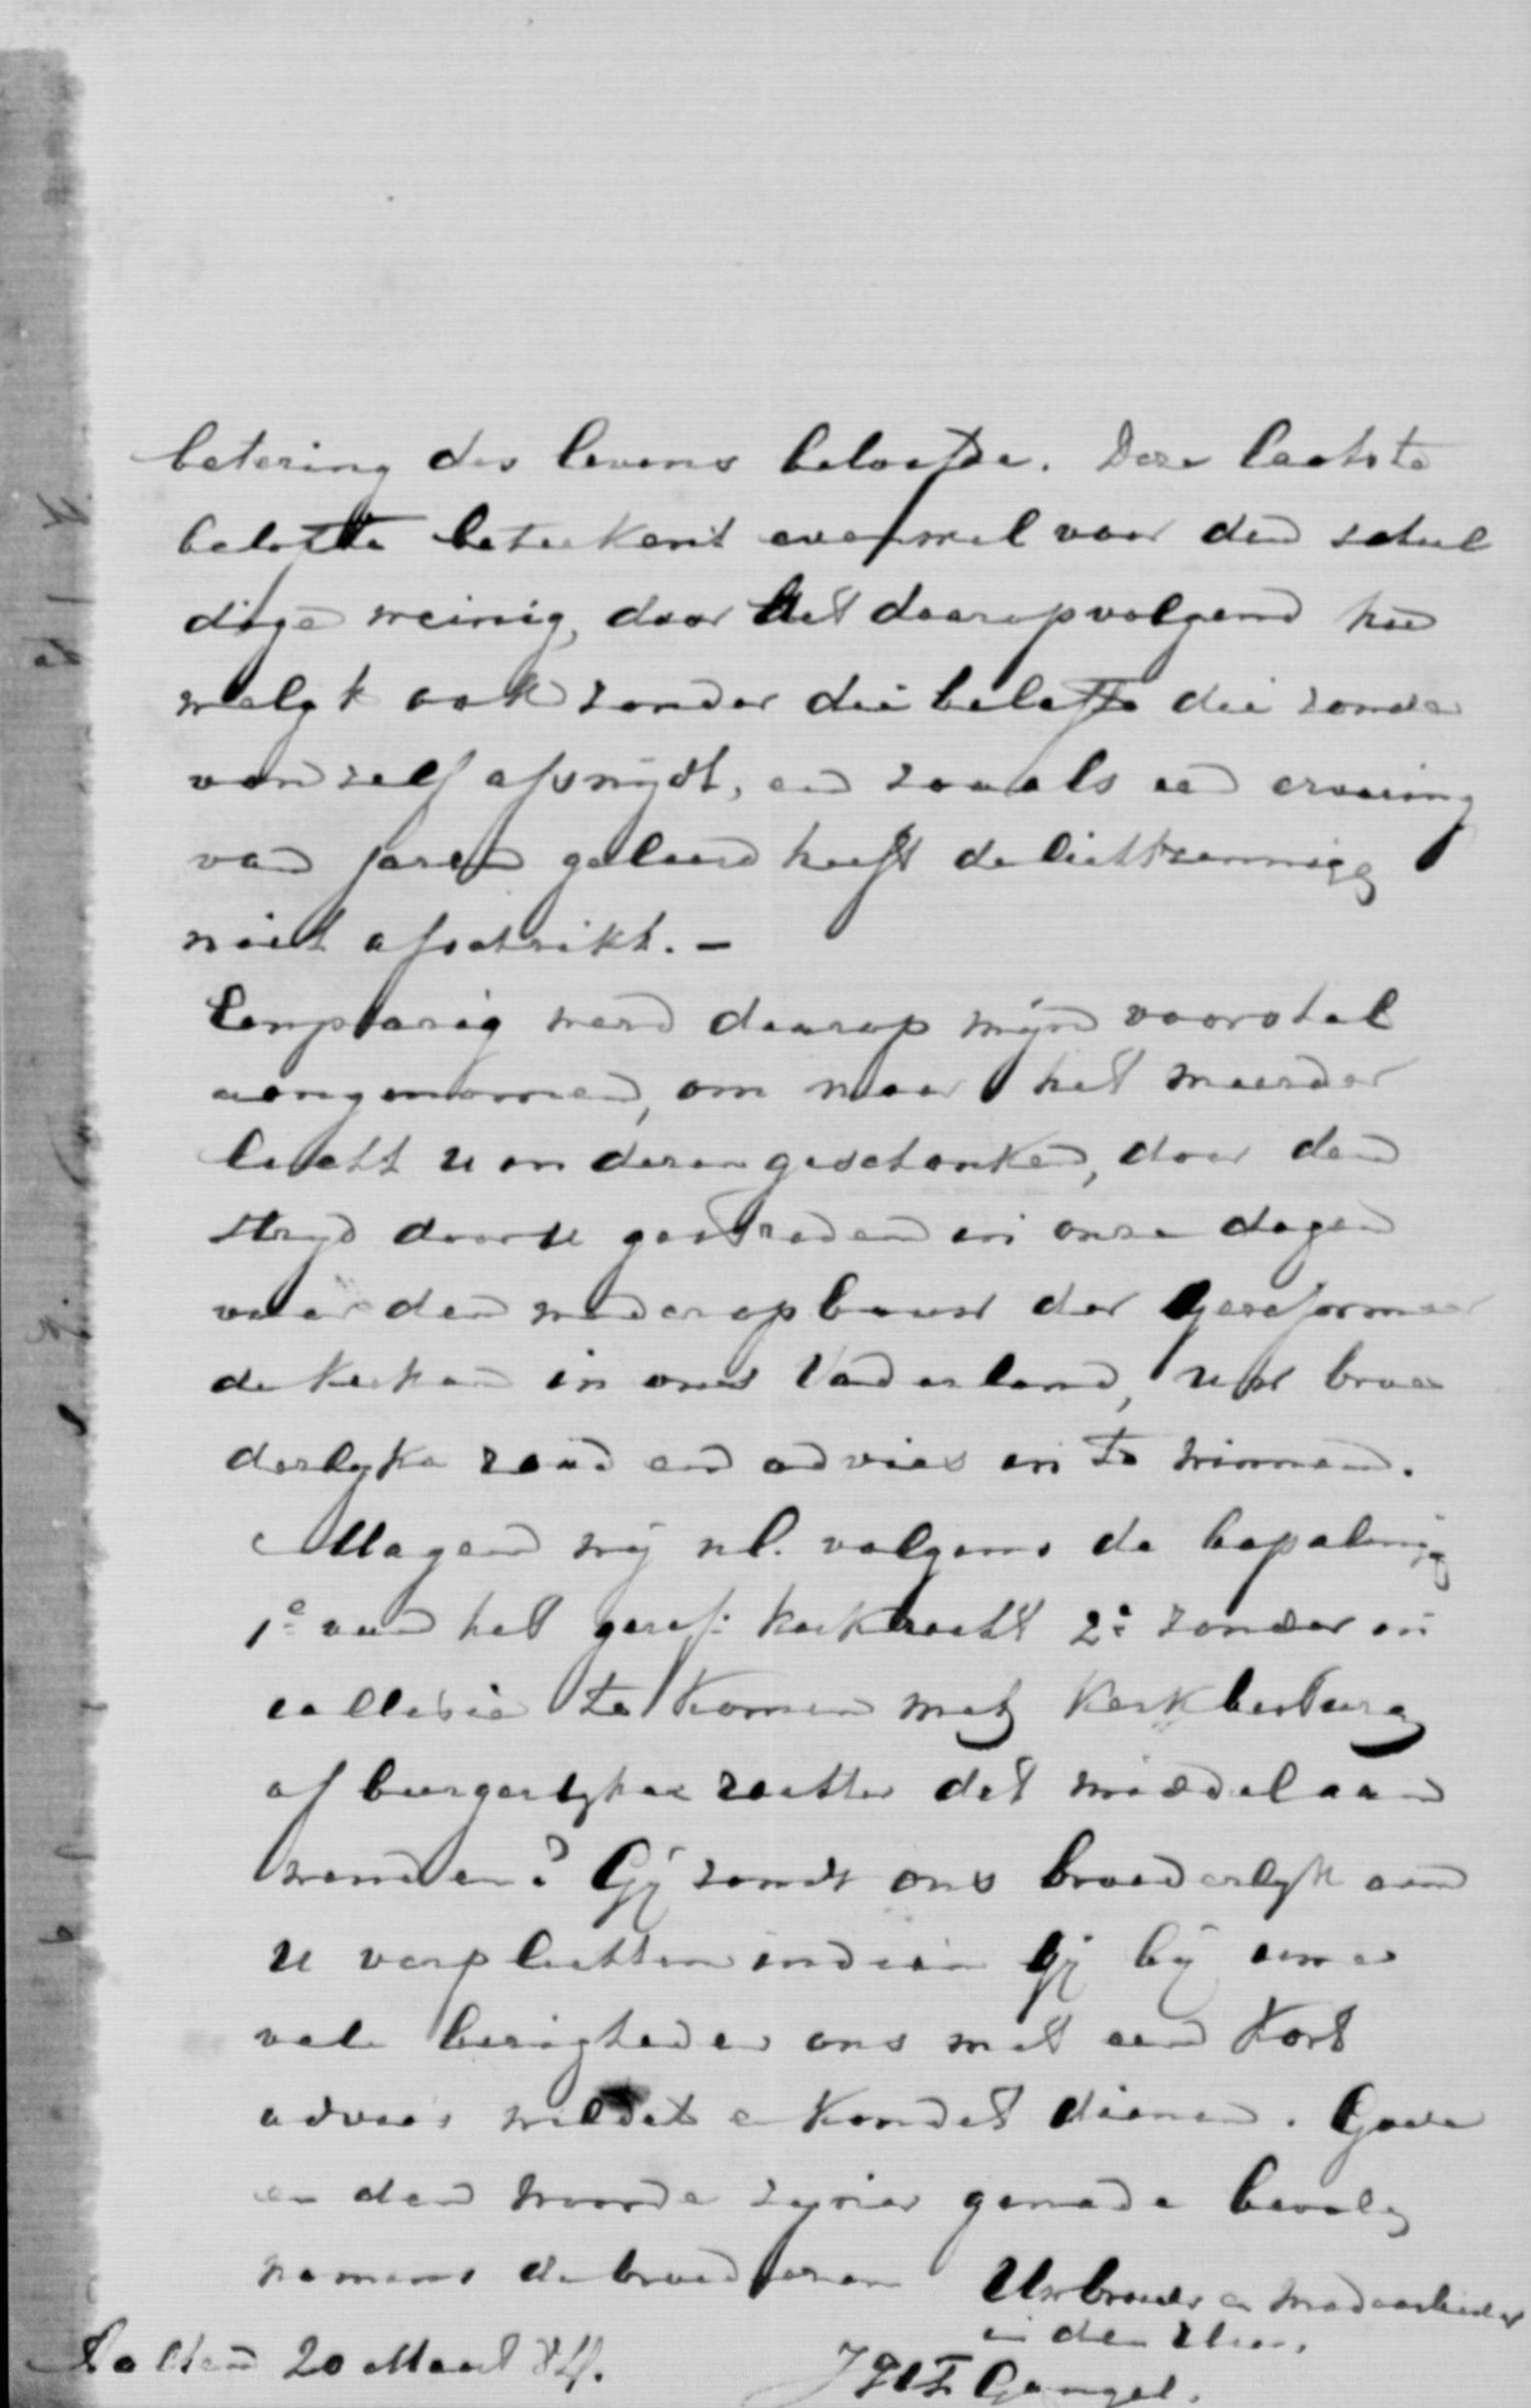 betering des levens beloofde. Deze laatste
belofte beteekent evenwel voor den schul
dige weinig, daar het daaropvolgend hu
welyk ook zonder die belofte die zonde
van zelf afsnydt, en zooals een ervaring
van jaren geleerd heeft de lichtzinnige
niet afschrikt. -
Eenparig werd daarop mijn voorstel
aangenomen, om naar het meerder
licht u en deren geschonken, door den
stryd door u gestreden in onze dagen
voor den wederopbouw der Gereformeer
de kerken in ons Vaderland, uw broe
derlyke raad en advies in te winnen.
Mogen wij nl. volgens de bepaling
1e van het geref. kerkrecht 2e zonder in
collisie te komen met kerkbestuur
of burgerlyke rechter dat middel aan
wenden? Gij zoudt ons broederlyk aan
u verplichten indien Gij bij uwe
vele bezigheden ons met een kort
advies wildet en kondet dienen. Gode
en den woorde zyner genade bevolen
namens de broederen Uw broeder en medearbeider
in den Heer,
20 Maart 84. Gangel.